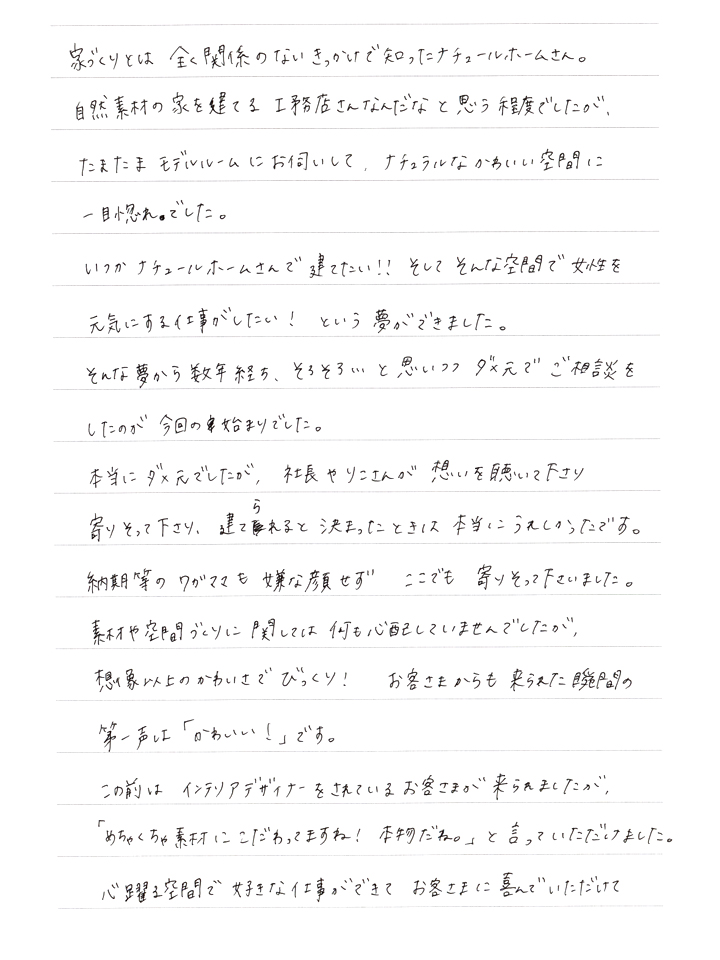 家づくりとは 全く関係のないきっかけで知ったナチュールホームさん。
自然素材の家を建てる 工務店さんなんだな と思う程度でしたが、
たまたま モデルルームにお伺いして、ナチュラルなかわいい空間に
一目惚れ。でした。
いつか ナチュールホームさんで 建てたい!! そして そんな空間で 女性を
元気にする仕事がしたい! という 夢ができました。
そんな夢から 数年経ち、そろそろ… と 思いつつ ダメ元で ご相談を
したのが 今回の始まりでした。
本当に ダメ元でしたが、社長や りこさんが 想いを聴いて下さり
寄りそって下さり、建てられると 決まったときは 本当にうれしかったです。
納期等の ワガママも 嫌な顔せず ここでも 寄りそって下さいました。
素材や空間づくりに関しては 何も心配していませんでしたが、
想像以上のかわいさで びっくり! お客さまからも 来られた瞬間の
第一声は「かわいい!」です。
この前は インテリアデザイナーをされているお客さまが 来られましたが、
「めちゃくちゃ素材にこだわってますね! 本物だね。」と 言っていただけました。
心躍る空間で 好きな仕事ができて お客さまに 喜んでいただけて